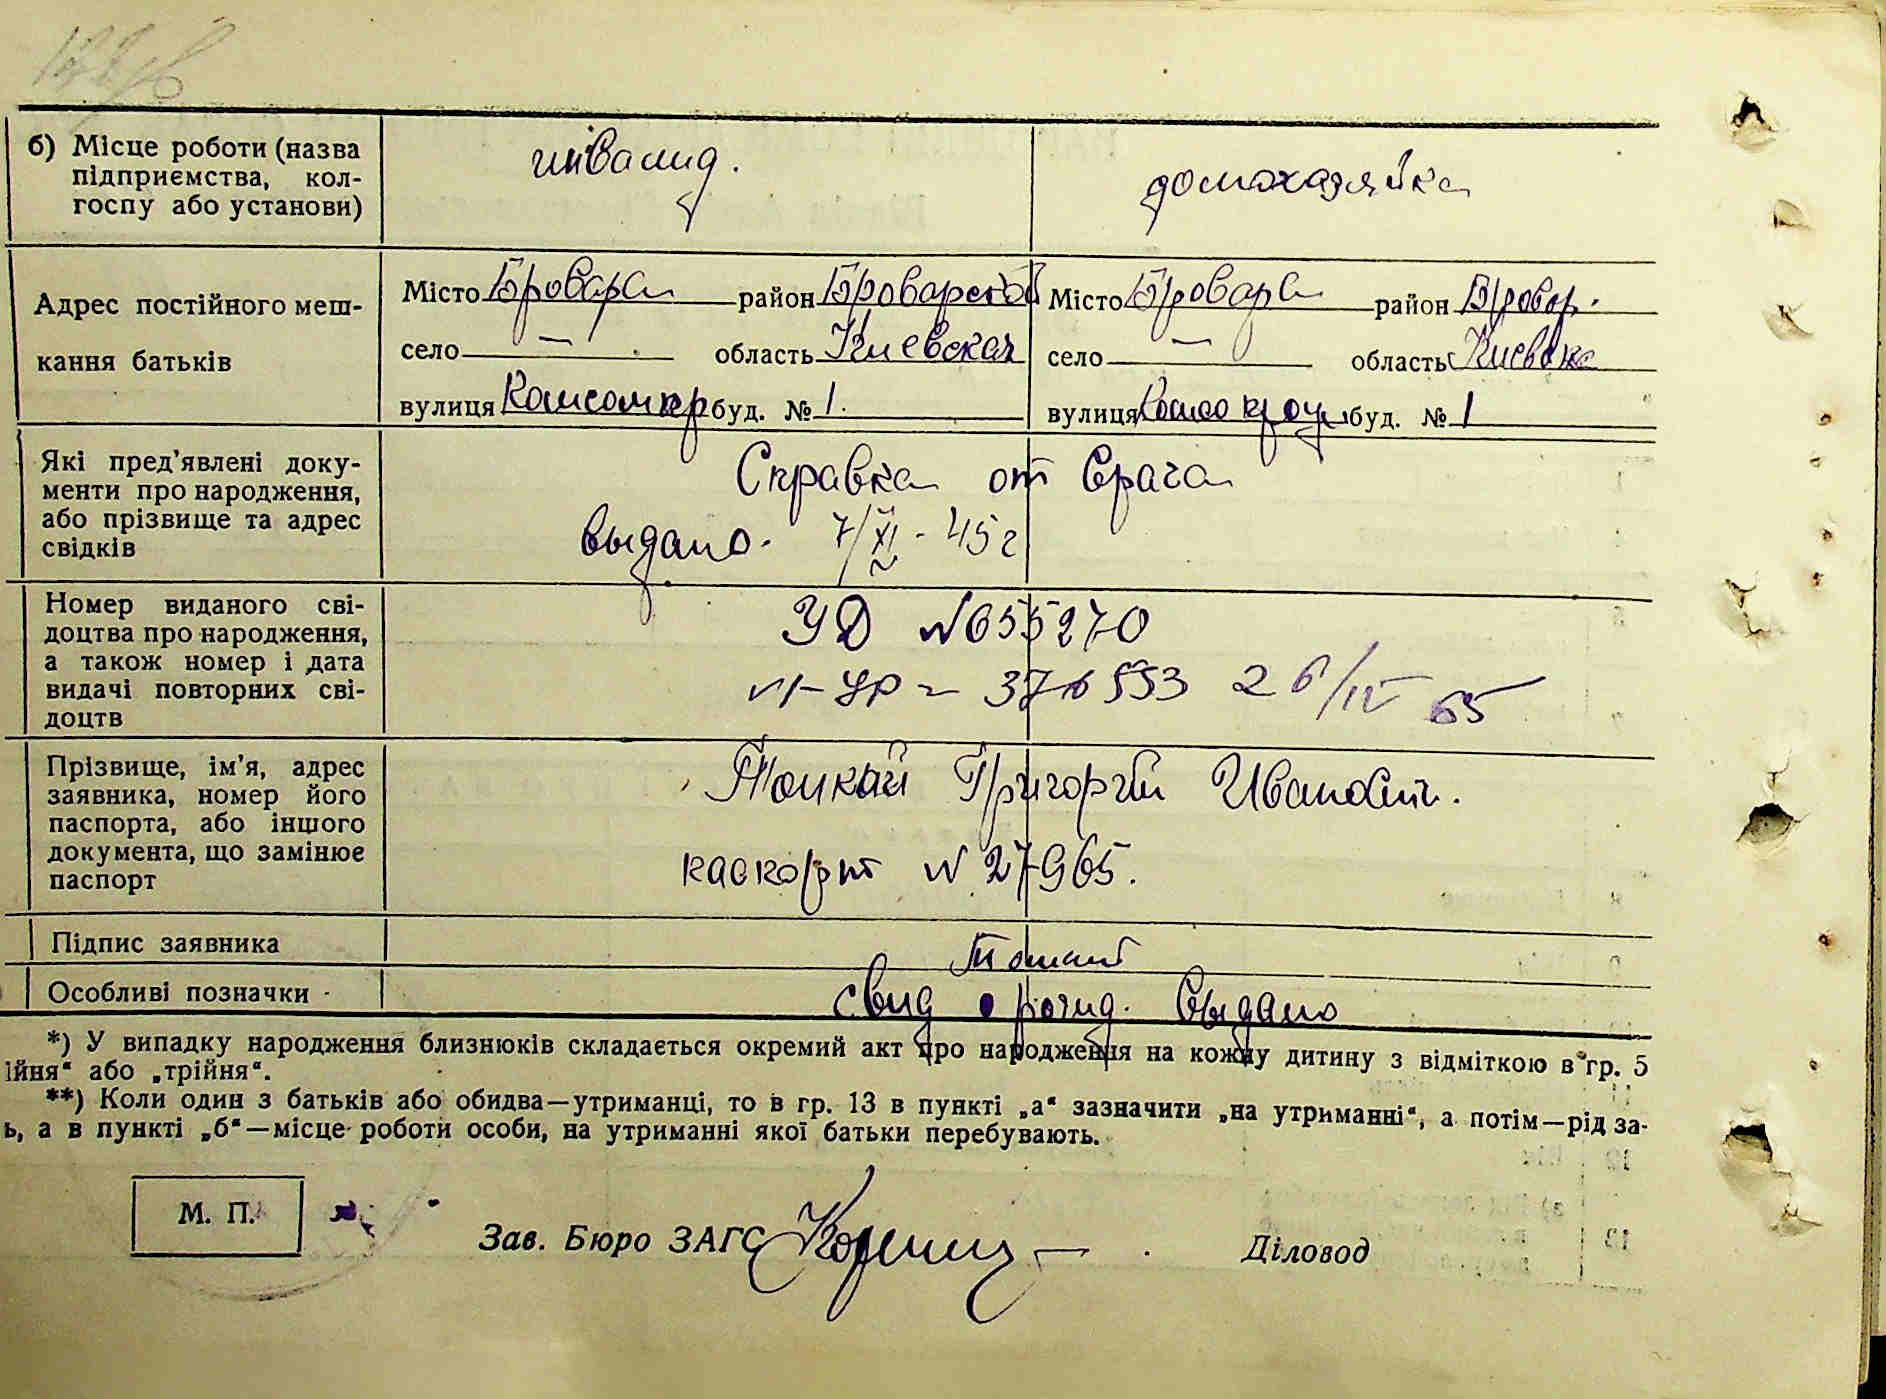 б) Місце роботи (назва
підприємства, кол-
госпу або установи)
инвалид.
домохазяйка
Адрес постійного меш-
кання батьків
Місто Бровары район Броварской
село — область Киевская
вулиця буд. № 1.
Місто Бровары район Бровар.
село — область Киевска
вулиця буд. № 1
Які пред'явлені доку-
менти про народження,
або прізвище та адрес
свідків
Справка от врача
выдано. 7/XI - 45 г
Номер виданого сві-
доцтва про народження,
а також номер і дата
видачі повторних сві-
доцтв
УД №655270
376553 26/IV 65
Прізвище, ім'я, адрес
заявника, номер його
паспорта, або іншого
документа, що замінює
паспорт
Григорий Иванович.
паспорт № 27965.
Підпис заявника
Особливі позначки
свид о рожд. выдано
*) У випадку народження близнюків складається окремий акт про народження на кожну дитину з відміткою в гр. 5
ійня“ або „трійня“.
**) Коли один з батьків або обидва—утриманці, то в гр. 13 в пункті „а“ зазначити „на утриманні“, а потім—рід за-
ь, а в пункті „б“—місце роботи особи, на утриманні якої батьки перебувають.
М. П.
Зав. Бюро ЗАГС
Діловод